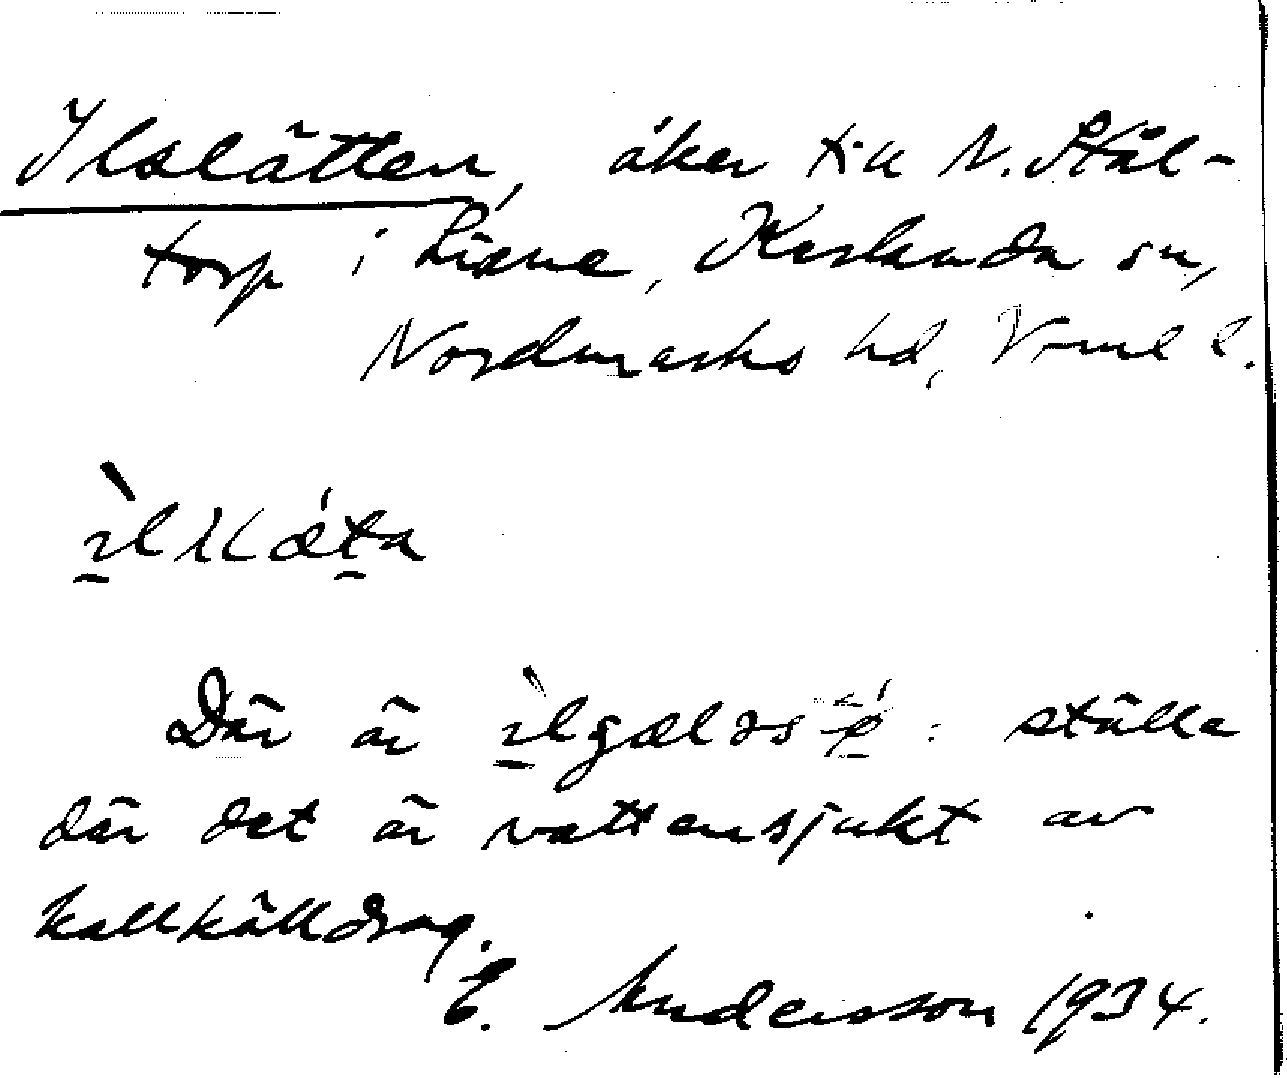 Ilslätten, åker till N. Stål-
torp i Liane, Karlanda sn,
Nordmarks hd, Vrml l.
Där är : ställe
där det är vattensjukt av
kallkälldrag.
E. Andersson 1934.